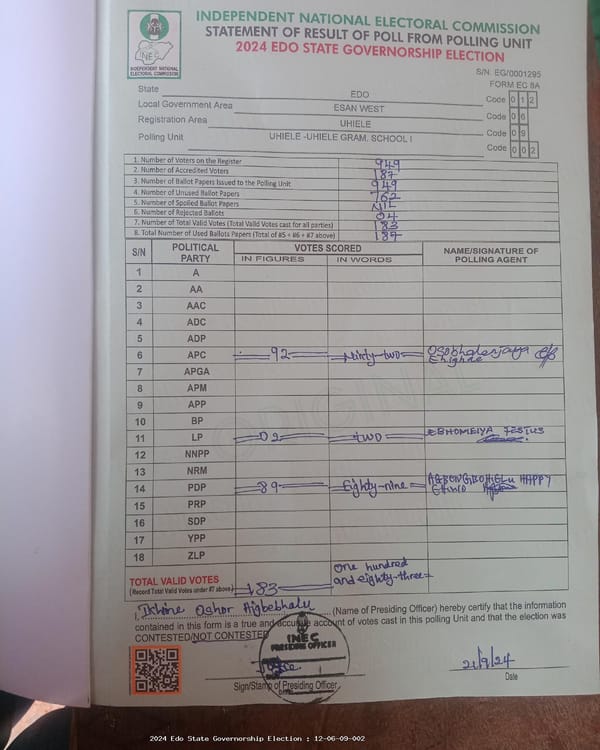 INDEPENDENT NATIONAL ELECTORAL COMMISSION
STATEMENT OF RESULT OF POLL FROM POLLING UNIT
2024 EDO STATE GOVERNORSHIP ELECTION
INEC
INDEPENDENT NATIONAL
ELECTORAL COMMISSION
S/N: EG/0001295
FORM EC 8A
State EDO Code 0 1 2
Local Government Area ESAN WEST Code 0 6
Registration Area UHIELE Code 0 9
Polling Unit UHIELE -UHIELE GRAM. SCHOOL I Code 0 0 2
1. Number of Voters on the Register 949
2. Number of Accredited Voters 187
3. Number of Ballot Papers Issued to the Polling Unit 949
4. Number of Unused Ballot Papers 762
5. Number of Spoiled Ballot Papers NIL
6. Number of Rejected Ballots 04
7. Number of Total Valid Votes (Total Valid Votes cast for all parties) 183
8. Total Number of Used Ballots Papers (Total of #5 + #6 + #7 above) 187
S/N POLITICAL PARTY VOTES SCORED NAME/SIGNATURE OF POLLING AGENT
IN FIGURES IN WORDS
1 A
2 AA
3 AAC
4 ADC
5 ADP
6 APC 92 Ninty-two
7 APGA
8 APM
9 APP
10 BP
11 LP 02 two EBHOMEIYA FESTUS
12 NNPP
13 NRM
14 PDP 89 Eighty-nine HAPPY
15 PRP
16 SDP
17 YPP
18 ZLP
TOTAL VALID VOTES
(Record Total Valid Votes under #7 above) 183 One hundred and eighty-three
I, Ikhine Oshor Aigbebhalu (Name of Presiding Officer) hereby certify that the information
contained in this form is a true and accurate account of votes cast in this polling Unit and that the election was
CONTESTED/NOT CONTESTED
INEC
PRESIDING OFFICER
Sign/Stamp of Presiding Officer
21/9/24
Date
2024 Edo State Governorship Election : 12-06-09-002